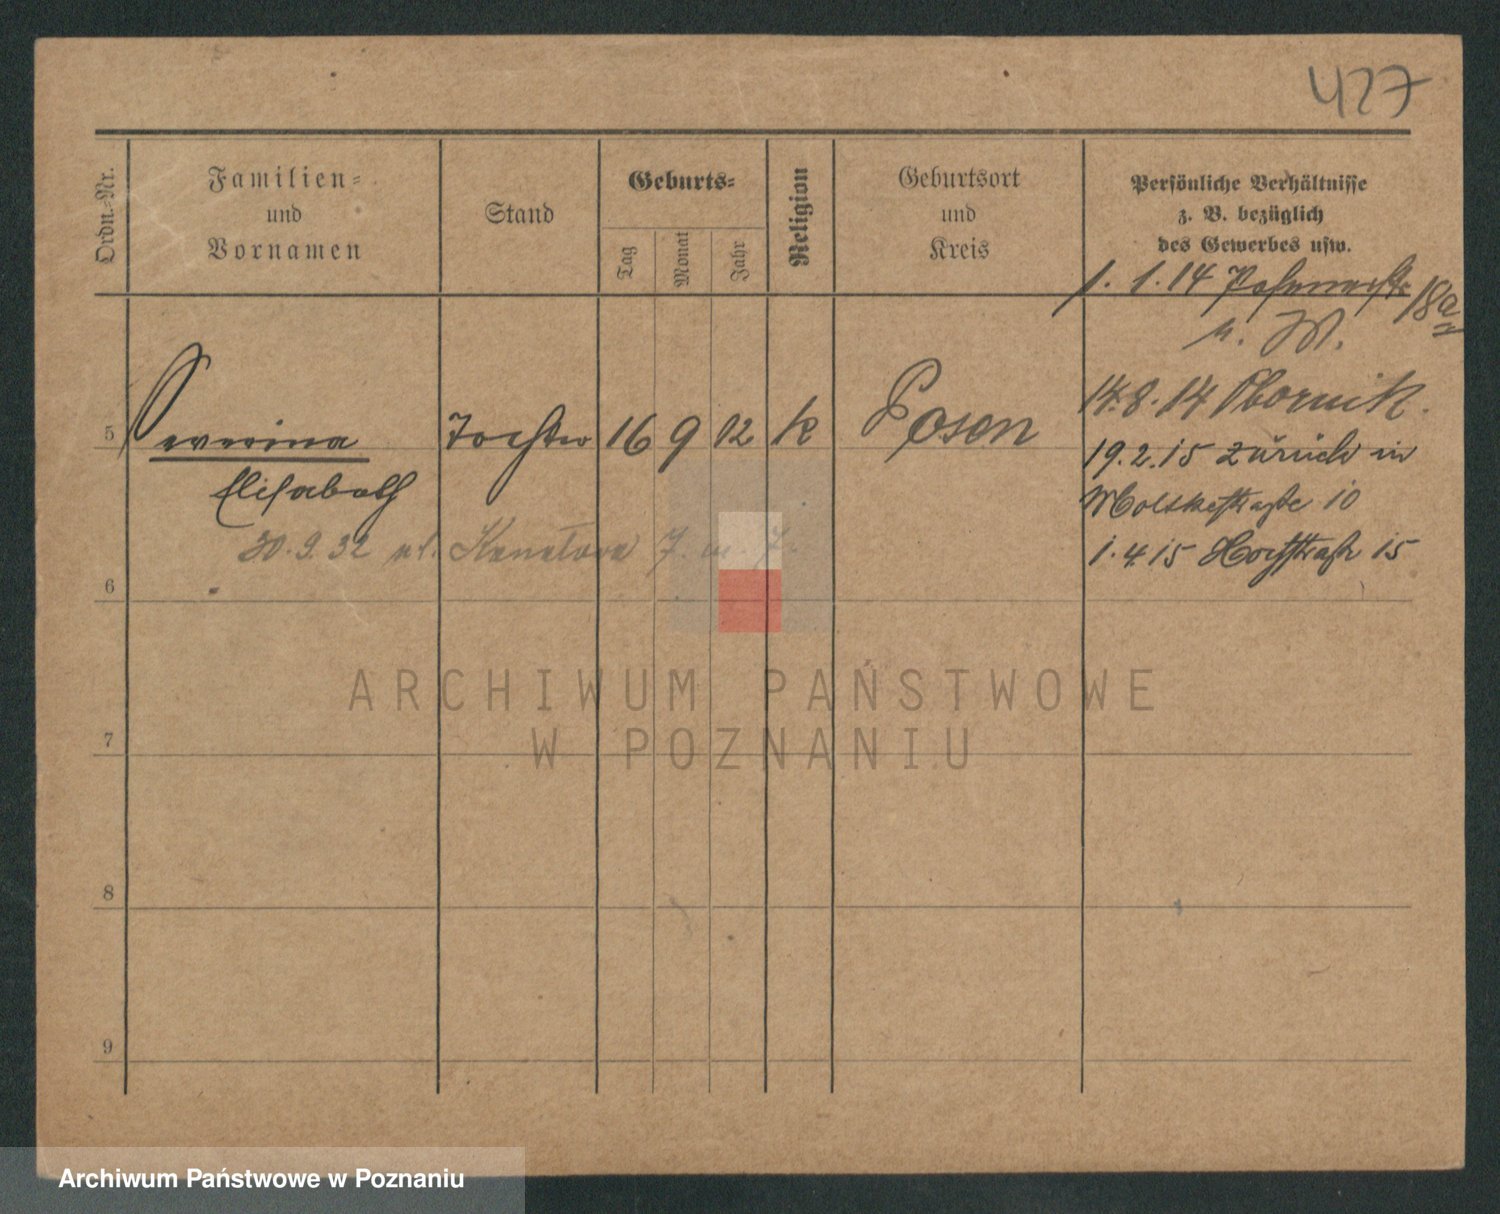 427
Ordn.-Nr.
Familien-
und
Vornamen
Stand
Geburts-
Tag
Monat
Jahr
Religion
Geburtsort
und
Kreis
Persönliche Verhältnisse
z. B. bezüglich
des Gewerbes usw.
1. 1. 14 Posenerstr 18a
n. W.
5
Severina
Tochter
16
9
12
k
Posen
14. 8. 14 Obornik.
Elisabeth
19. 2. 15 zurück in
Moltkestraße 10
30. 9. 32 ul. 7. m. 7.
1. 4. 15 Hochstraße 15
6
7
8
9
ARCHIWUM PAŃSTWOWE
W POZNANIU
Archiwum Państwowe w Poznaniu